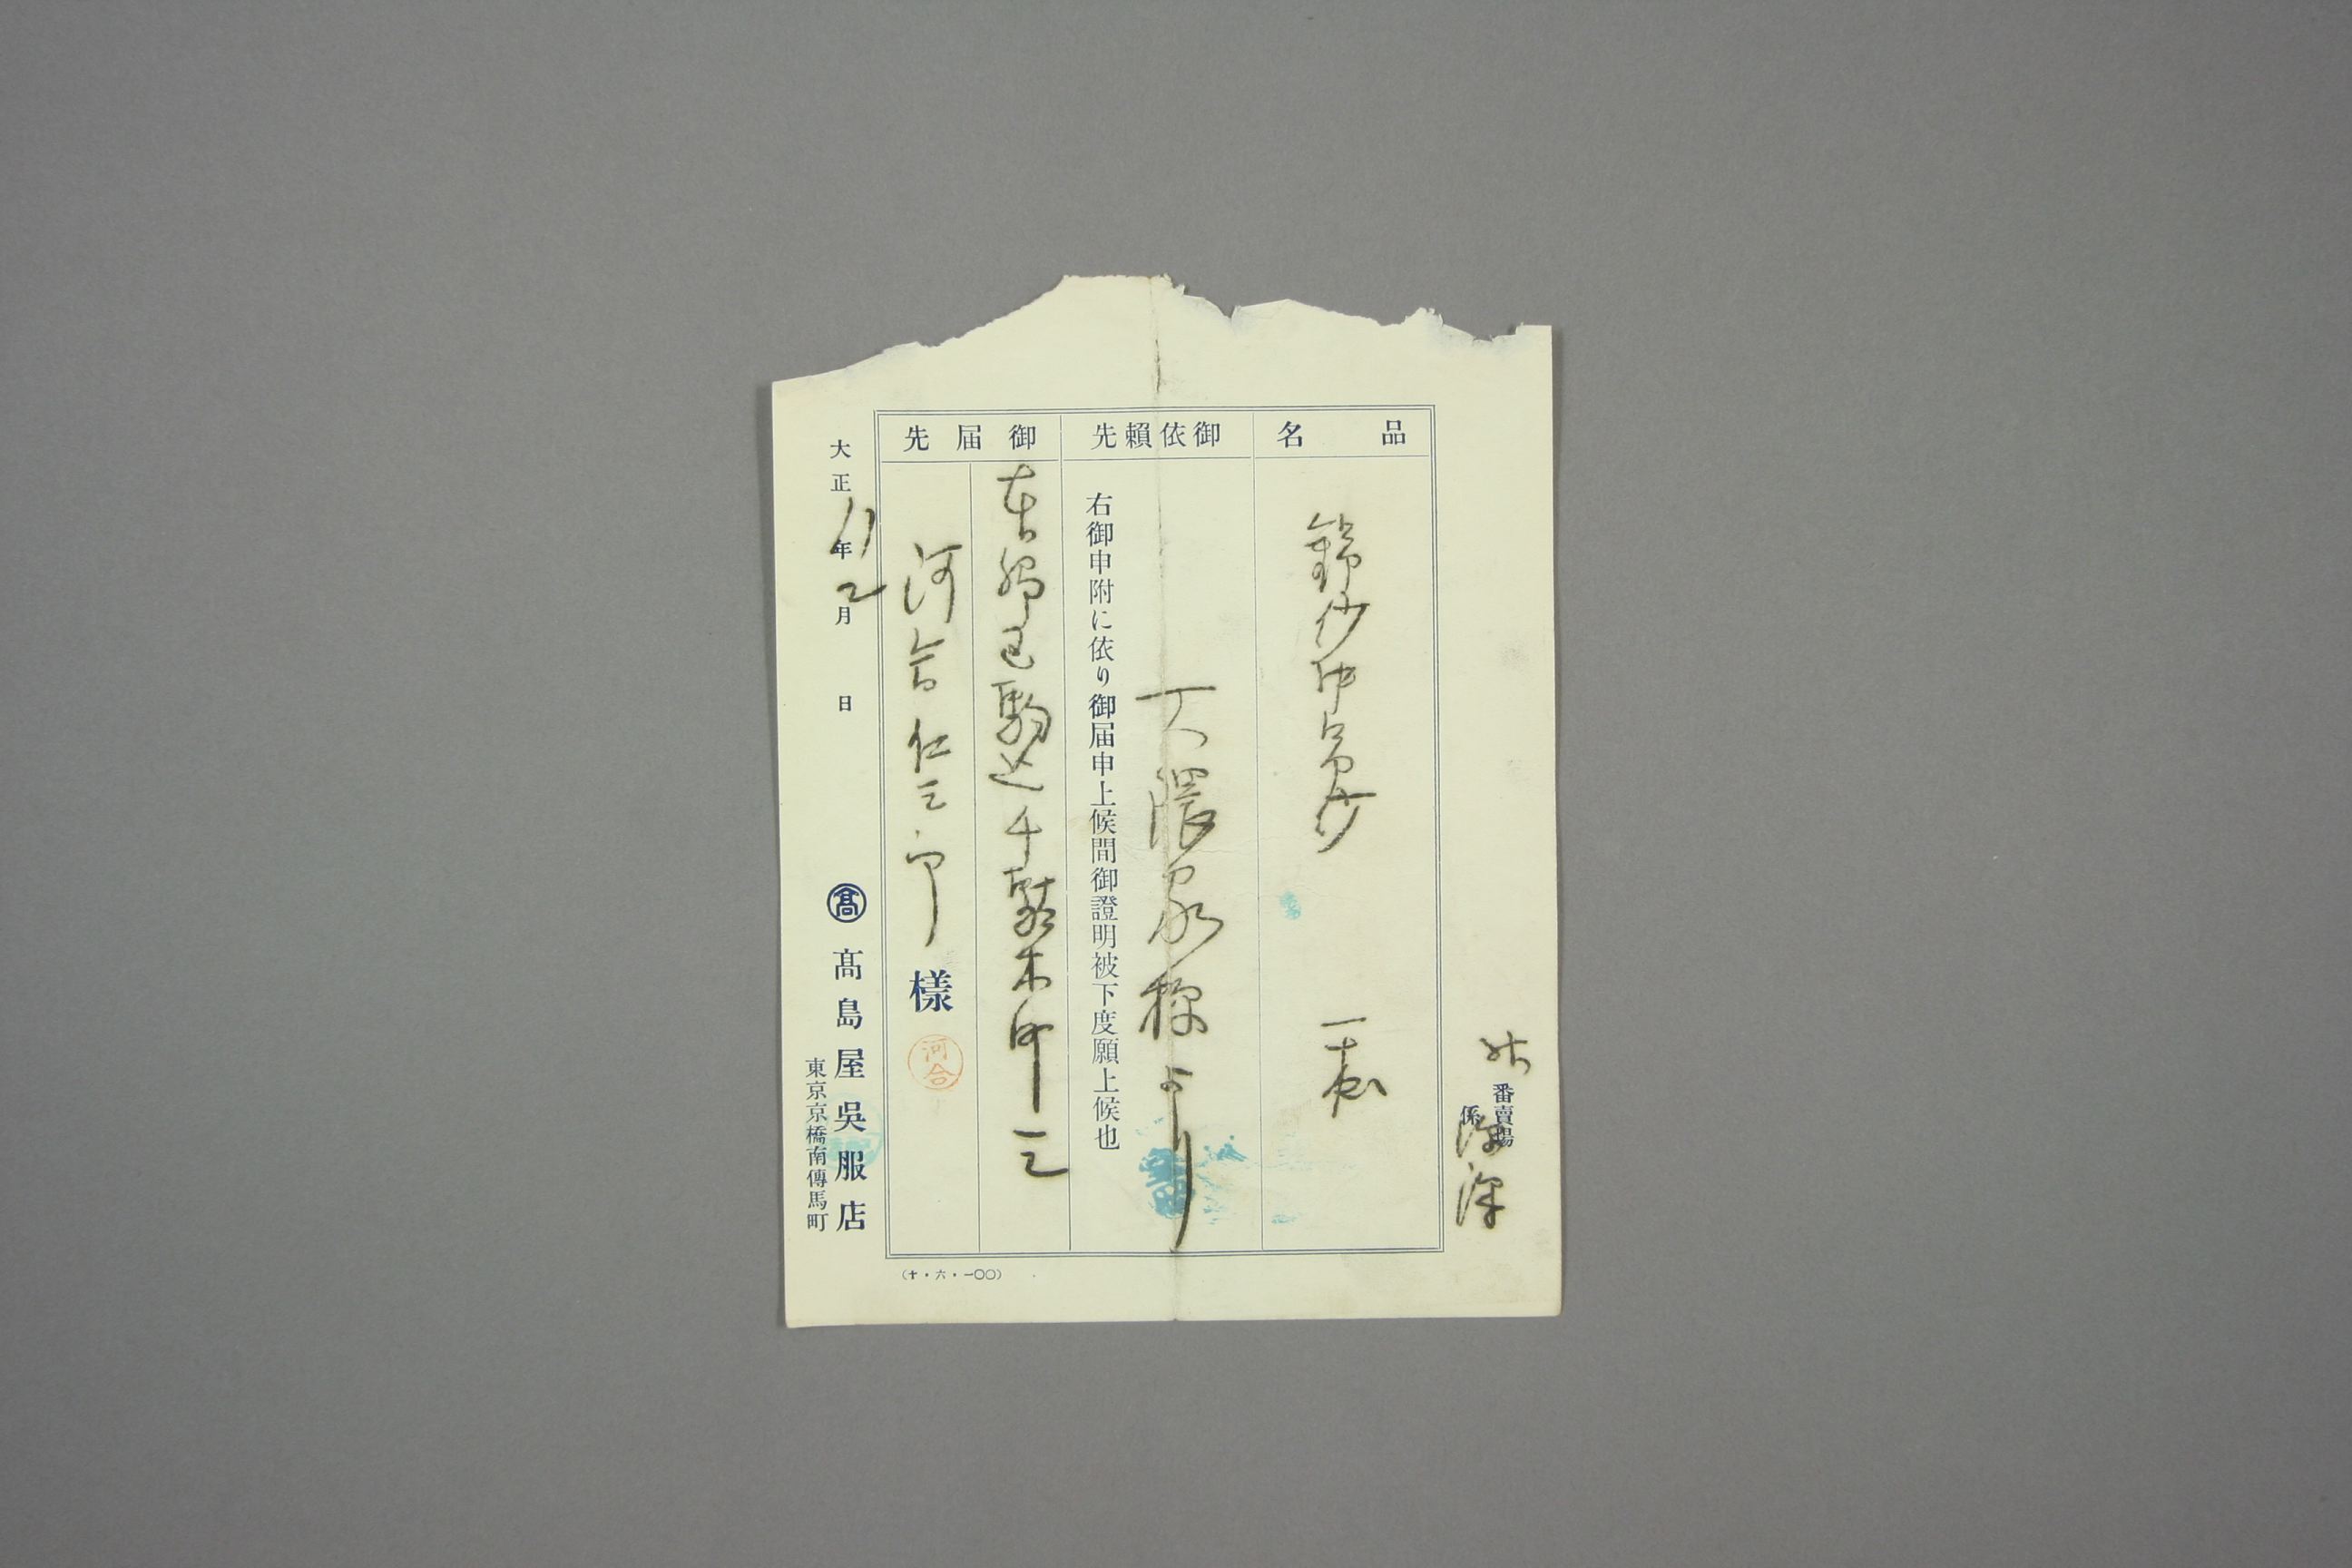 番賣場
係
品名
錦紗中巾
一表
御依賴先
大隈家様より
右御申附に依り御届申上候間御證明被下度願上候也
御届先
本郷區駒込千駄木町一二
河合仁三郎様
河合
大正11年2月日
髙
髙島屋吳服店
東京京橋南傳馬町
(十・六・一〇〇)